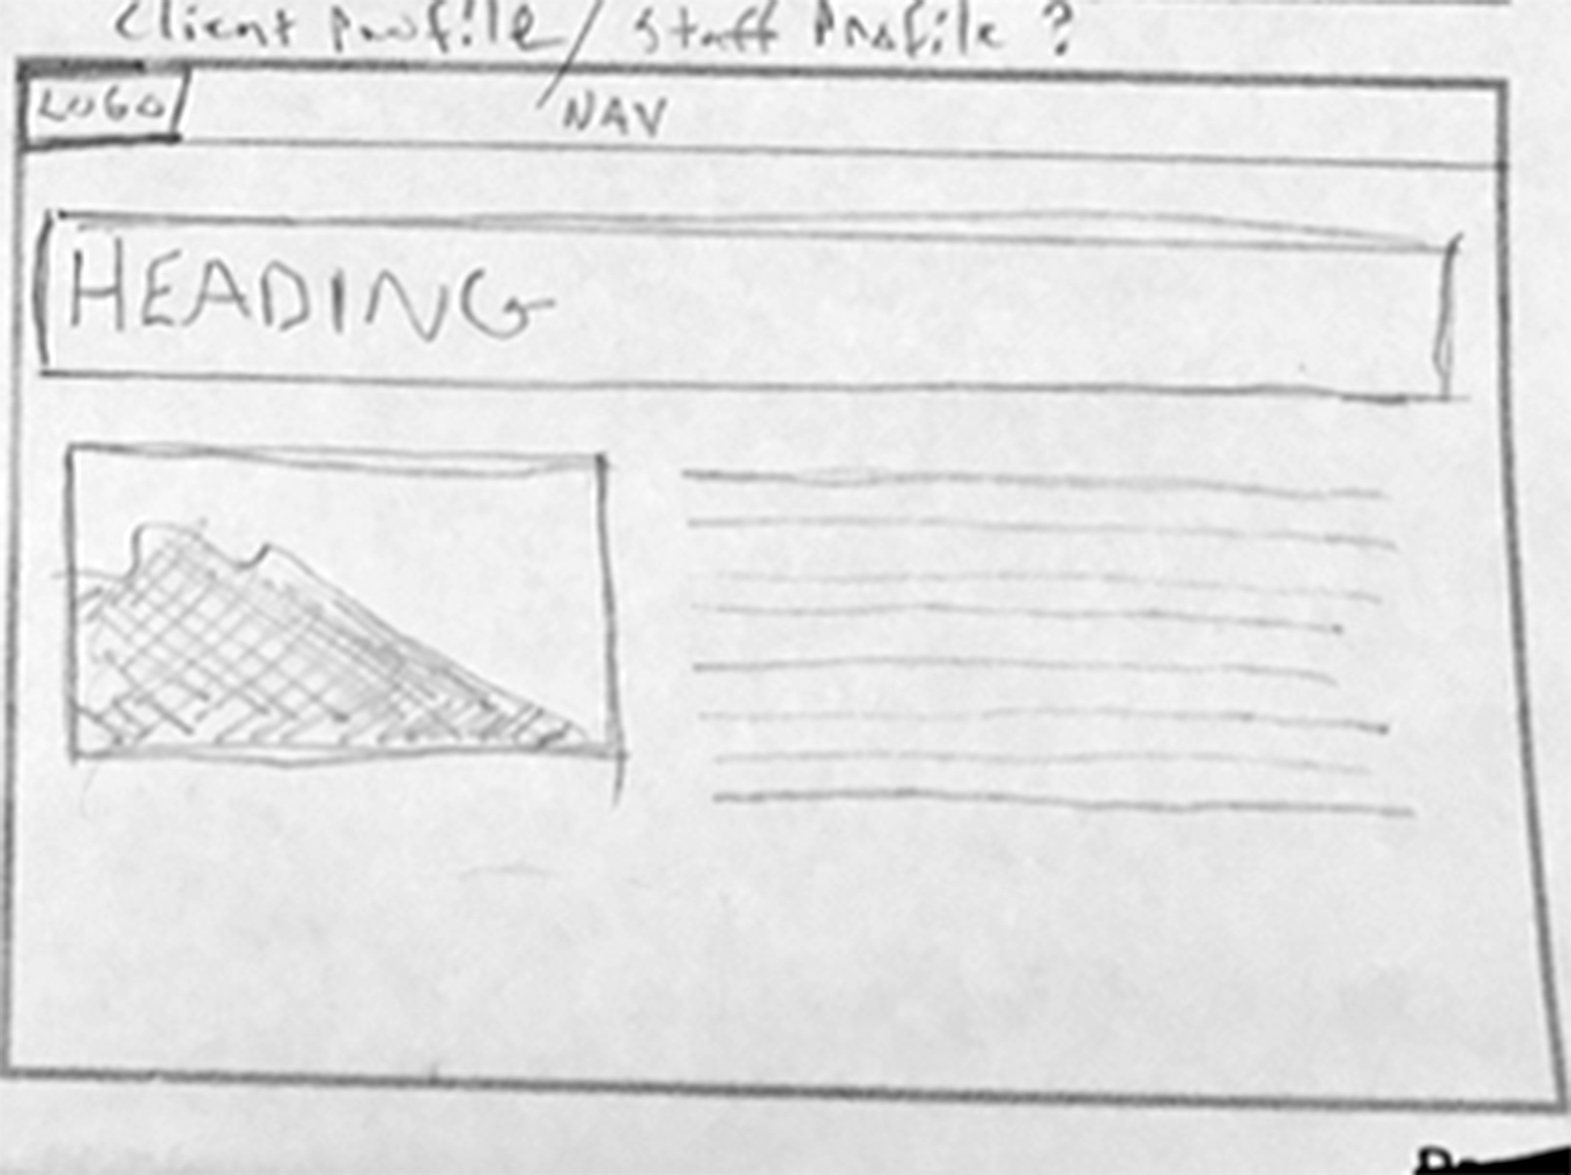 Client Profile / Staff Profile ?
LOGO
NAV
HEADING